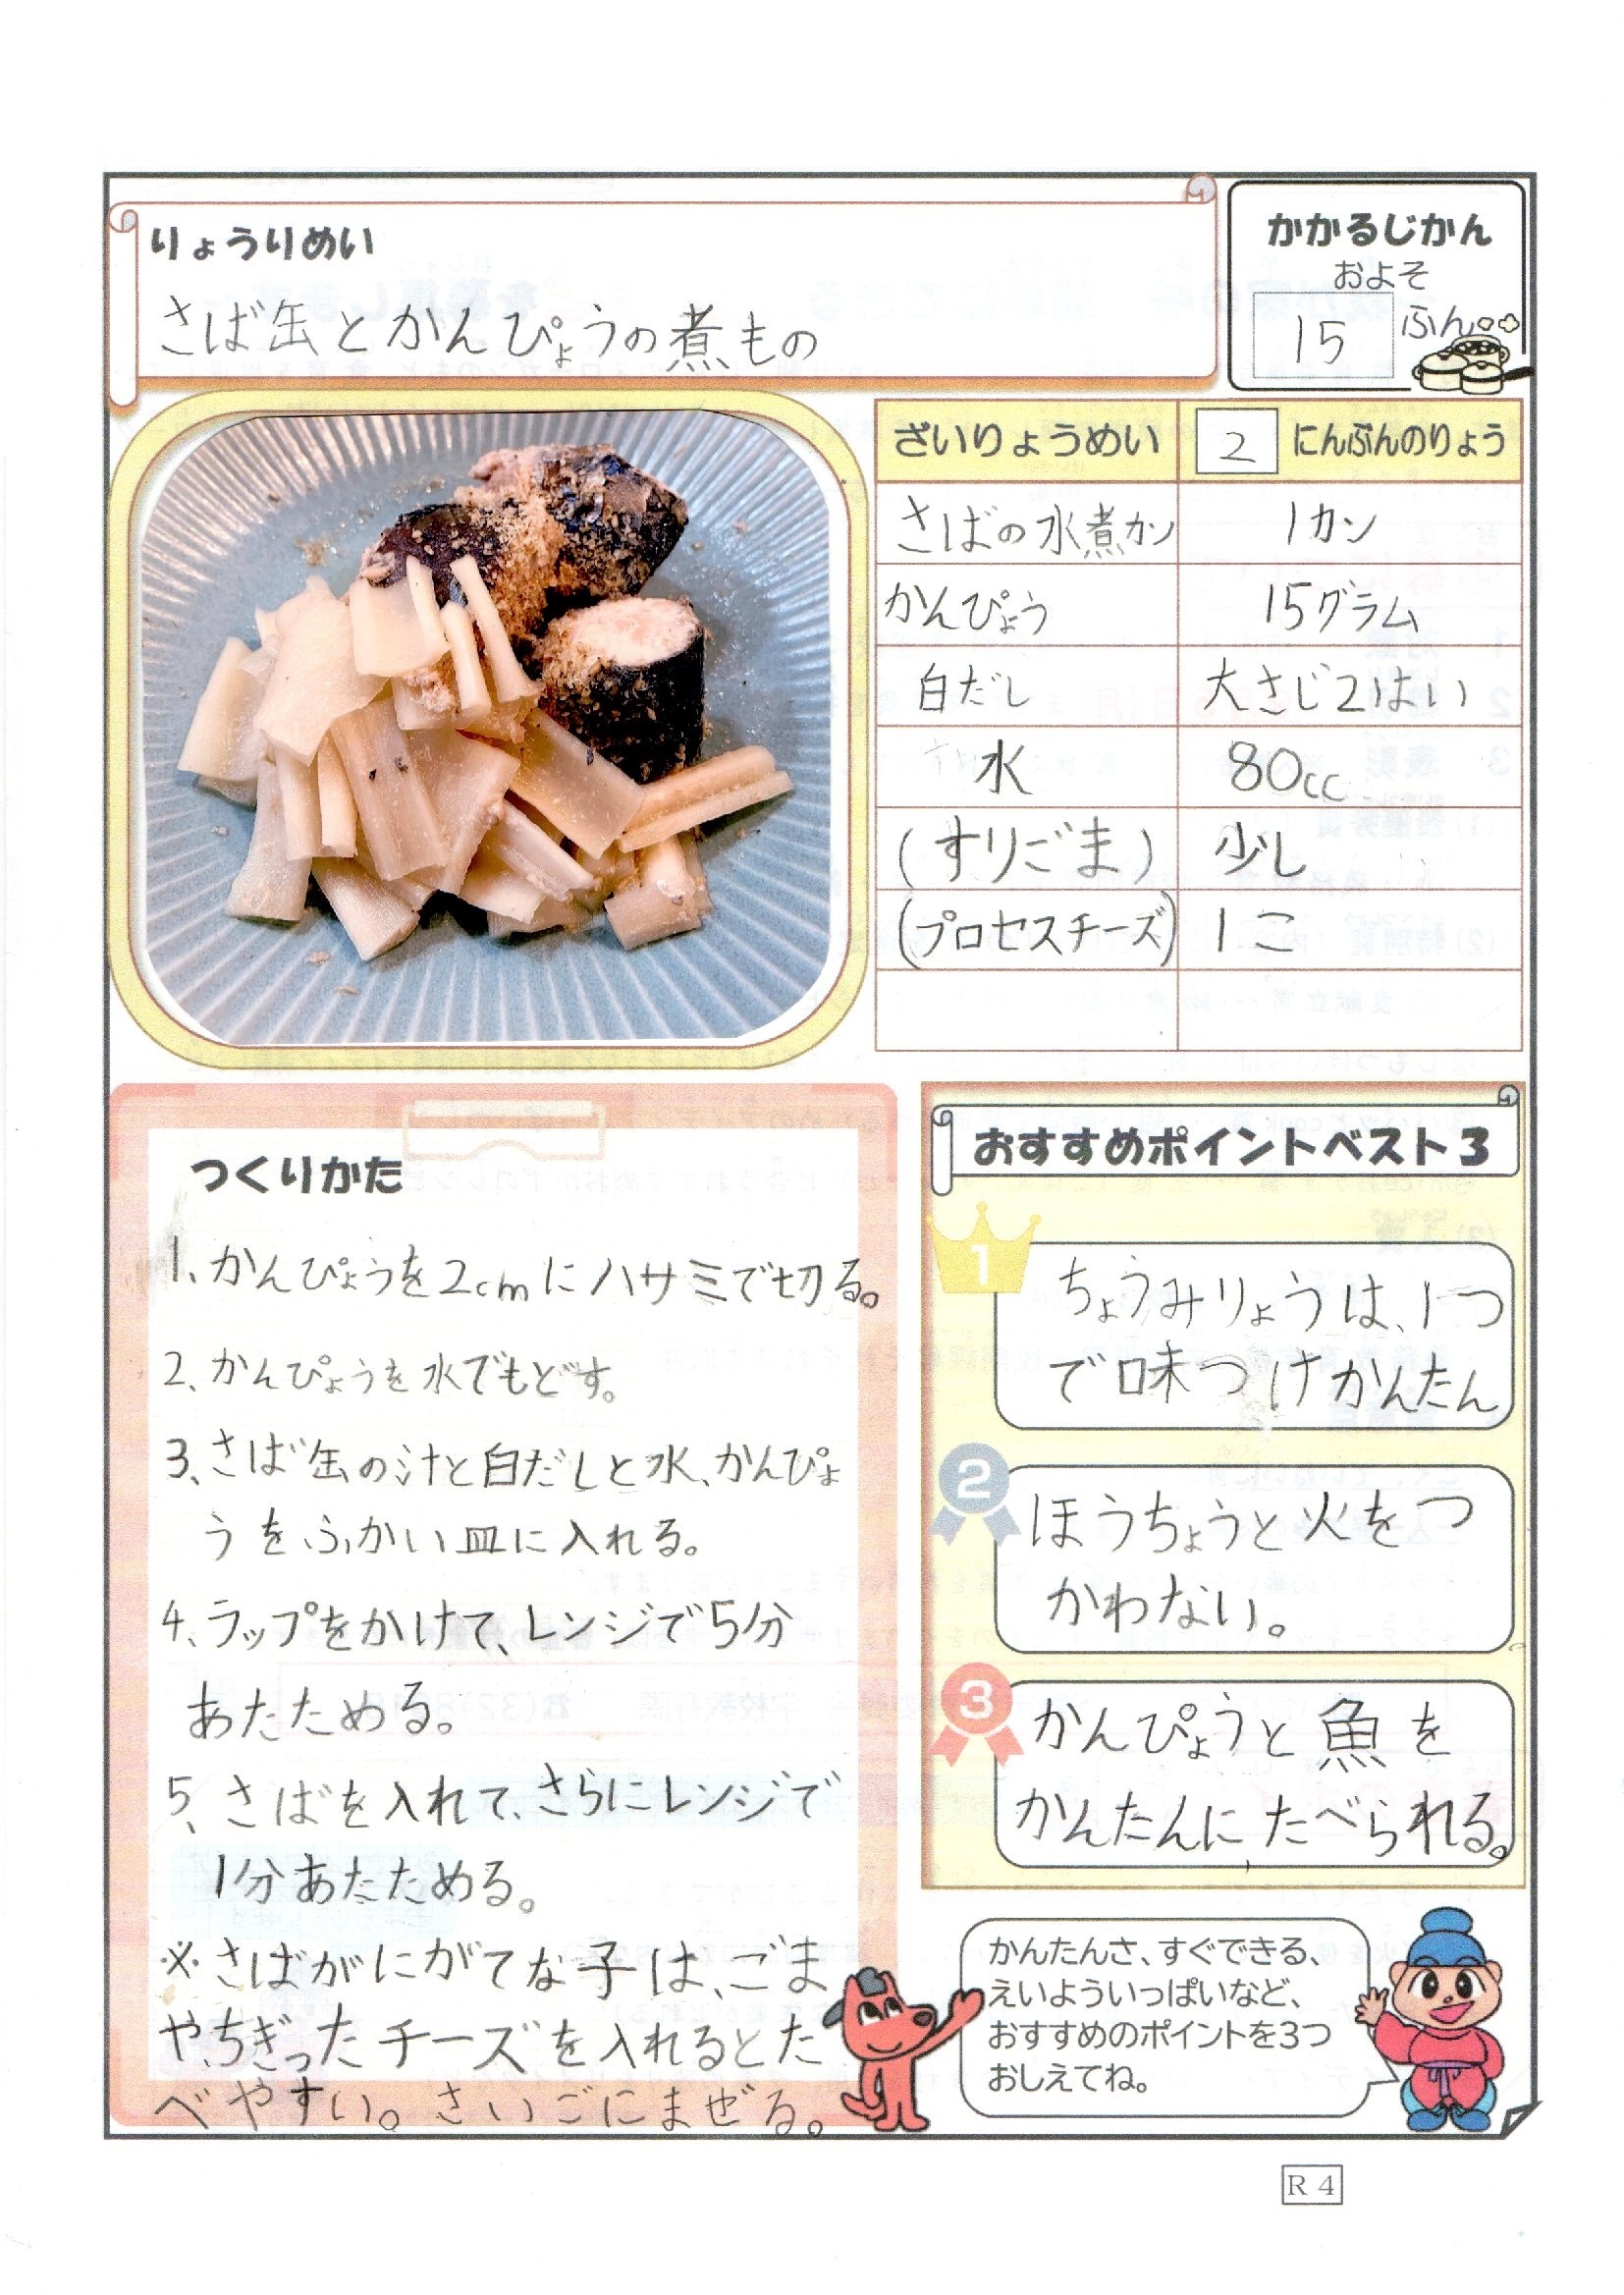 りょうりめい
さば缶とかんぴょうの煮もの
かかるじかん
およそ
15 ふん
ざいりょうめい 2 にんぶんのりょう
さばの水煮カン 1カン
かんぴょう 15グラム
白だし 大さじ2はい
水 80cc
(すりごま) 少し
(プロセスチーズ) 1こ
つくりかた
1、かんぴょうを2cmにハサミで切る。
2、かんぴょうを水でもどす。
3、さば缶の汁と白だしと水、かんぴょ
うをふかい皿に入れる。
4、ラップをかけて、レンジで5分
あたためる。
5、さばを入れて、さらにレンジで
1分あたためる。
※さばがにがてな子は、ごま
や、ちぎったチーズを入れるとた
べやすい。さいごにまぜる。
おすすめポイントベスト3
1
ちょうみりょうは、1つ
で味つけかんたん
2
ほうちょうと火をつ
かわない。
3
かんぴょうと魚を
かんたんにたべられる。
かんたんさ、すぐできる、
えいよういっぱいなど、
おすすめのポイントを3つ
おしえてね。
R 4